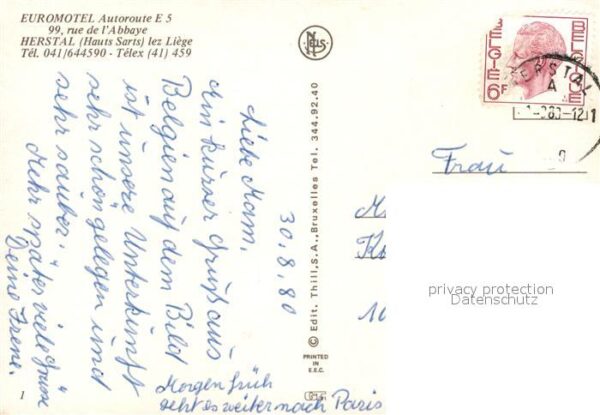 EUROMOTEL Autoroute E 5
99, rue de l'Abbaye
HERSTAL (Hauts Sarts) lez Liège
Tél. 041/644590 - Télex (41) 459
30.8.80
Liebe Mam,
ein kurzer Gruß aus
Belgien auf dem Bild
ist unsere Unterkunft
sehr schön gelegen und
sehr sauber.
Mehr später viele Grüße
Deine Irene.
Morgen früh
geht es weiter nach Paris
© Edit. Thill, S.A., Bruxelles Tel. 344.92.40
NELS
PRINTED
IN
E.E.C.
1
BELGIE
BELGIQUE
6F
HERSTAL
A
Frau
privacy protection
Datenschutz